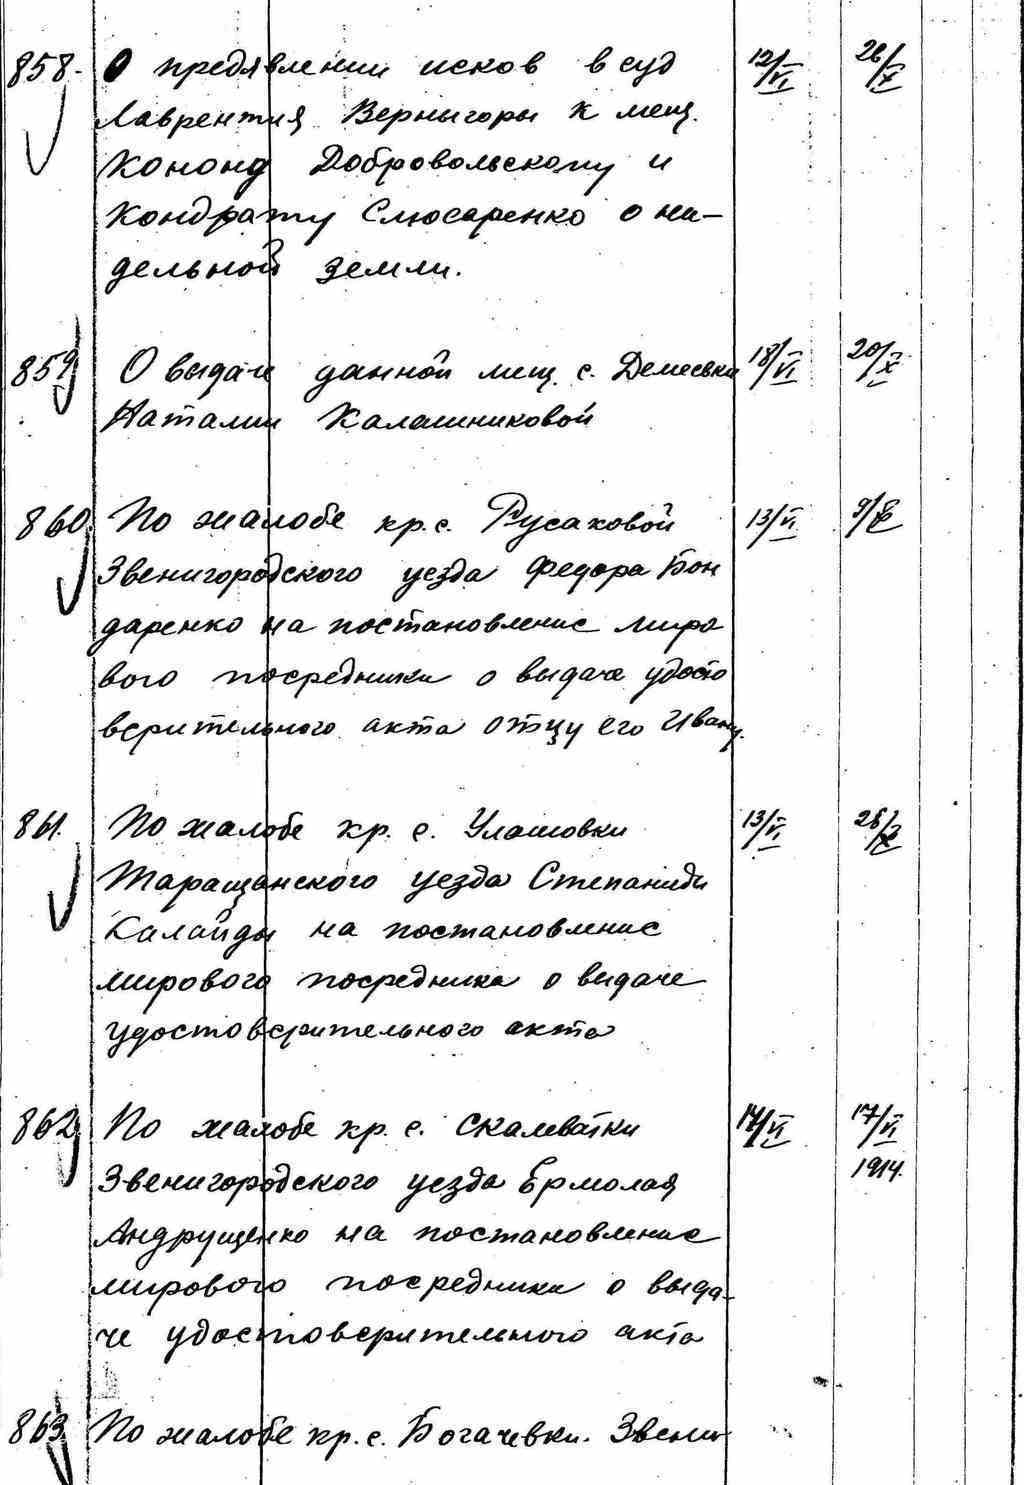 858. О предявлении исков в суд 12/VI 26/X
Лаврентия Вернигоры к мещ.
Конону Добровольскому и
Кондрату Слюсаренко о на-
дельной земли.
859 О выдаче данной мещ. с. Демеевки 18/VI 20/X
Наталии Калашниковой
860. По жалобе кр. с. Русаковой 13/VI 9/X
Звенигородского уезда Федора Бон
даренко на постановление миро
вого посредника о выдаче удосто
верительного акта отцу его Ивану.
861. По жалобе кр. с. Улашовки 13/VI 28/X
Таращанского уезда Степаниды
Калайды на постановление
мирового посредника о выдаче
удостоверительного акта
862 По жалобе кр. с. Скалеватки 14/VI 17/VI
1914.
Звенигородского уезда Ермолая
Андрущенко на постановление
мирового посредника о выда-
че удостоверительного акта
863 По жалобе кр. с. Богачевки. Звени